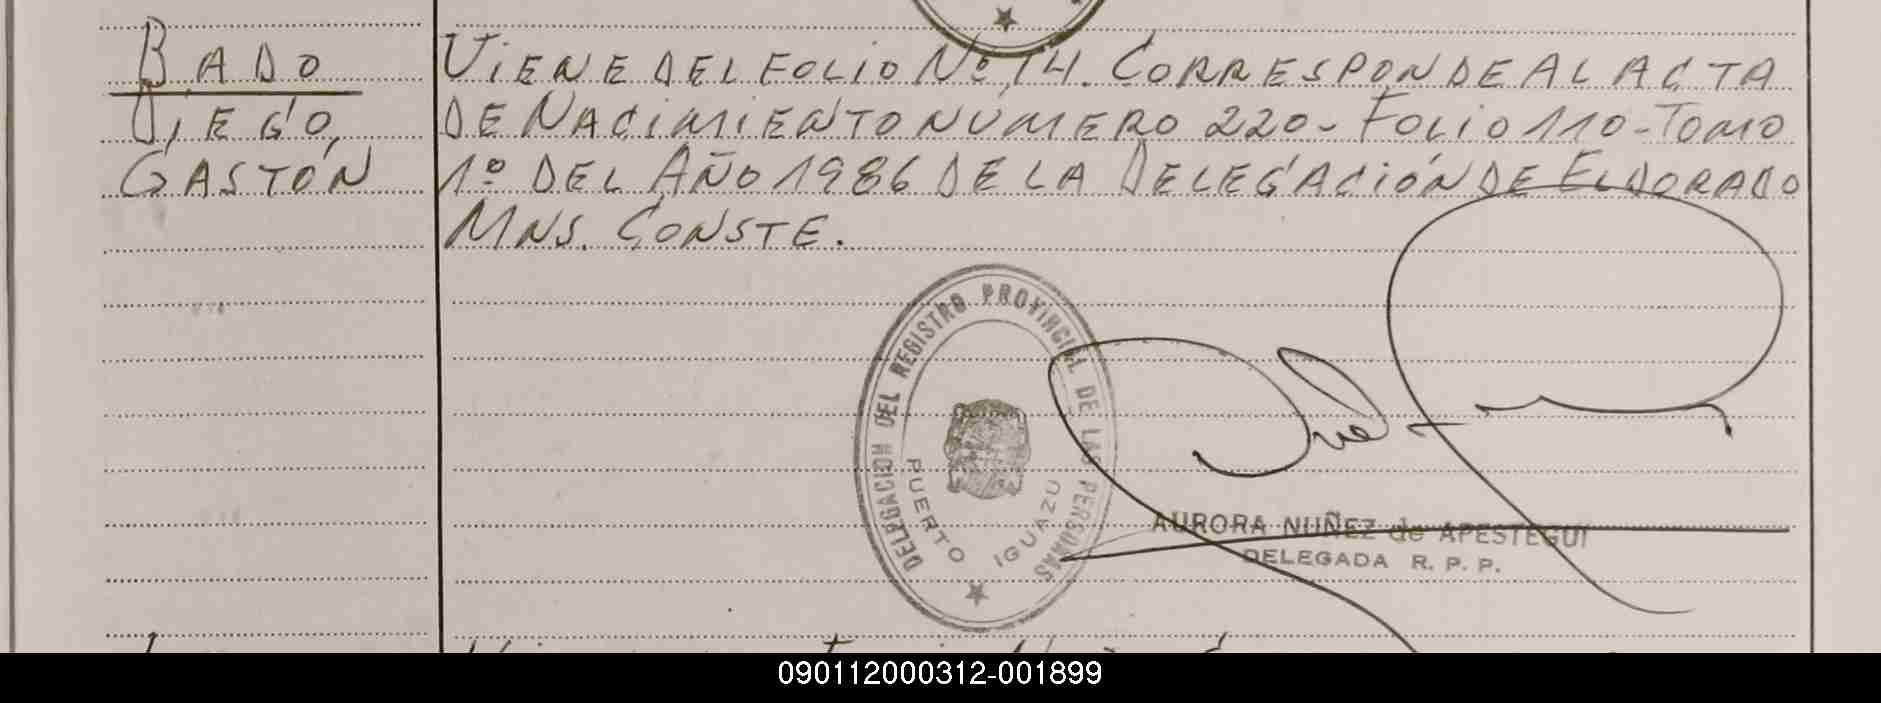 BADO
DIEGO,
GASTÓN
VIENE DEL FOLIO Nº 14. CORRESPONDE AL ACTA
DE NACIMIENTO NÚMERO 220- FOLIO 110- TOMO
1º DEL AÑO 1986 DE LA DELEGACIÓN DE ELDORADO
MNS. CONSTE.
DELEGACION DEL REGISTRO PROVINCIAL DE LAS PERSONAS
PUERTO IGUAZU
AURORA NUÑEZ de APESTEGUI
DELEGADA R. P. P.
090112000312-001899